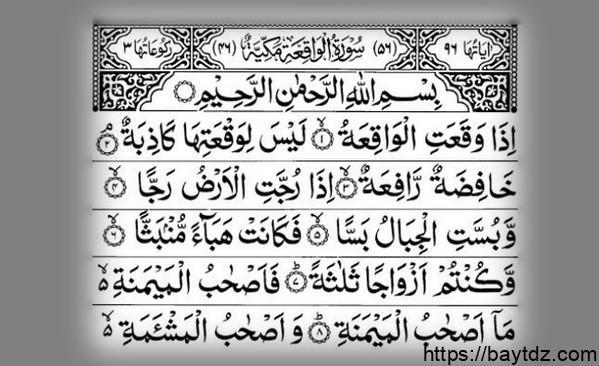 اٰیاتها ۹۶ (۵۶) سُوْرَةُ الْوَاقِعَةِ مَكِّيَّةٌ (۴۶) رکوعاتها ۳
بِسْمِ اللّٰهِ الرَّحْمٰنِ الرَّحِيْمِ
اِذَا وَقَعَتِ الْوَاقِعَةُ ۙ﴿۱﴾ لَيْسَ لِوَقْعَتِهَا كَاذِبَةٌ ۘ﴿۲﴾
خَافِضَةٌ رَّافِعَةٌ ۙ﴿۳﴾ اِذَا رُجَّتِ الْاَرْضُ رَجًّا ۙ﴿۴﴾
وَّبُسَّتِ الْجِبَالُ بَسًّا ۙ﴿۵﴾ فَكَانَتْ هَبَآءً مُّنْۢبَثًّا ۙ﴿۶﴾
وَّكُنْتُمْ اَزْوَاجًا ثَلٰثَةً ؕ﴿۷﴾ فَاَصْحٰبُ الْمَيْمَنَةِ ۙ۬
مَاۤ اَصْحٰبُ الْمَيْمَنَةِ ؕ﴿۸﴾ وَ اَصْحٰبُ الْمَشْـَٔمَةِ ۙ۬
https://baytdz.com